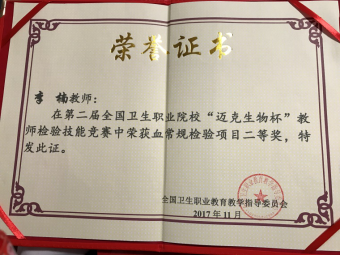 荣誉证书
李 楠教师:
在第二届全国卫生职业院校“迈克生物杯”教
师检验技能竞赛中荣获血常规检验项目二等奖,特
发此证。
全国卫生职业教育教学指导委员会
2017年11月